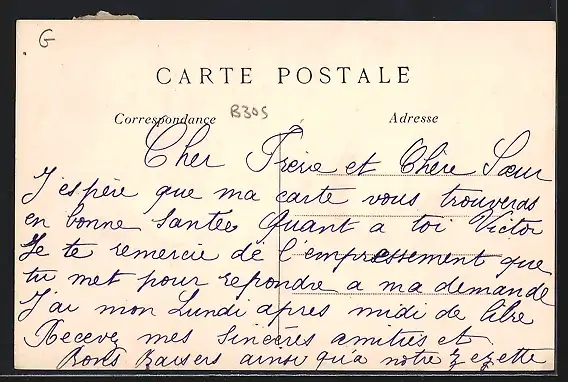 G
CARTE POSTALE
B305
Correspondance Adresse
Cher Frère et Chère Sœur
J'espère que ma carte vous trouveras
en bonne Santée Quant a toi Victor
Je te remercie de l'empressement que
tu met pour repondre a ma demande
J'ai mon Lundi apres midi de libre
Recevez mes Sincères amitiés et
Bons Baisers ainsi qu'a notre Zezette